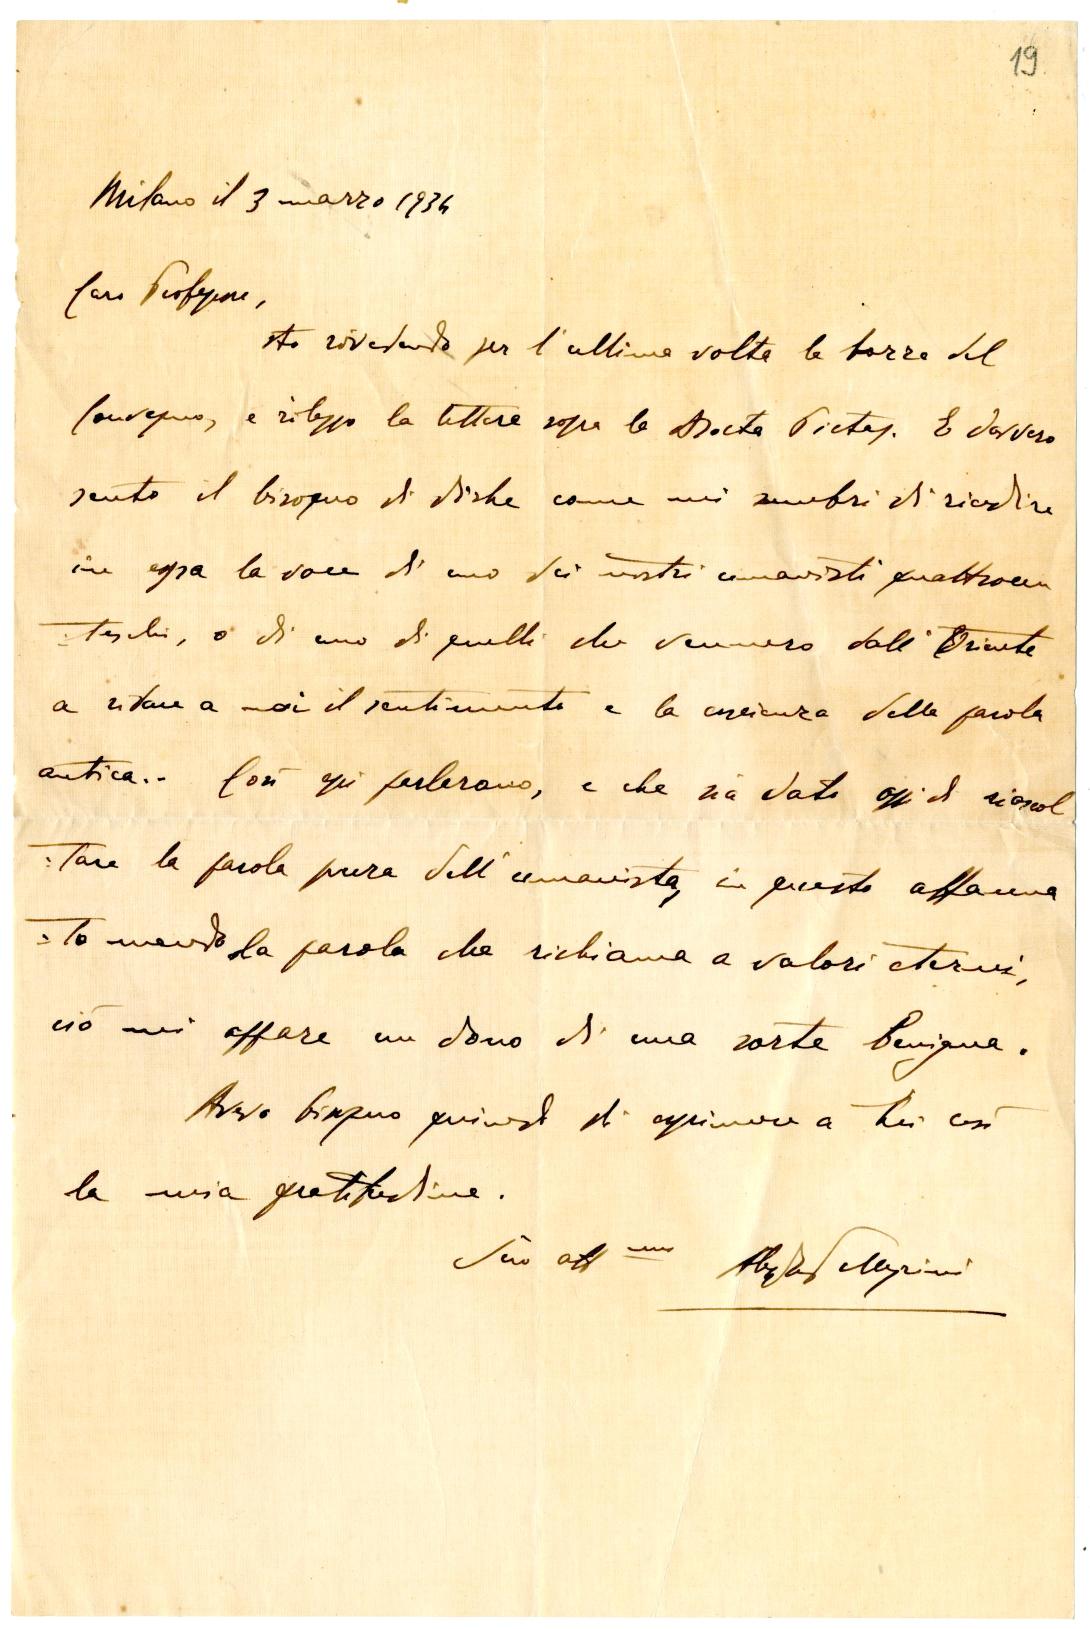 19
Milano il 3 marzo 1934
Caro Professore,
sto rivedendo per l'ultima volta le bozze del
Convegno, e rileggo la lettera sopra la Docta Pietas. E davvero
sento il bisogno di dirLe come mi sembri di riudire
in essa la voce di uno dei nostri umanisti quattrocen
=teschi, o di uno di quelli che vennero dall'Oriente
a ridare a noi il sentimento e la coscienza della parola
antica.. Così essi parlerano, e che sia dato oggi di riascol
=tare la parola pura dell'umanista, in questo affanna
=to mondo la parola che richiama a valori eterni,
ciò mi appare un dono di una sorte benigna.
Avevo bisogno quindi di esprimere a Lei così
la mia gratitudine.
Suo aff mo Pellegrini